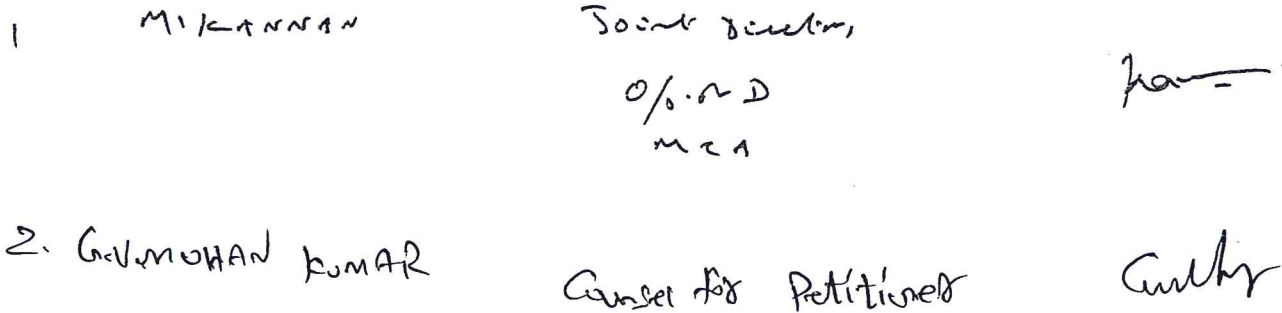 1 M. KANNAN Joint Director,
O/o. RD
MCA
2. G.V. MOHAN KUMAR Counsel for Petitioner